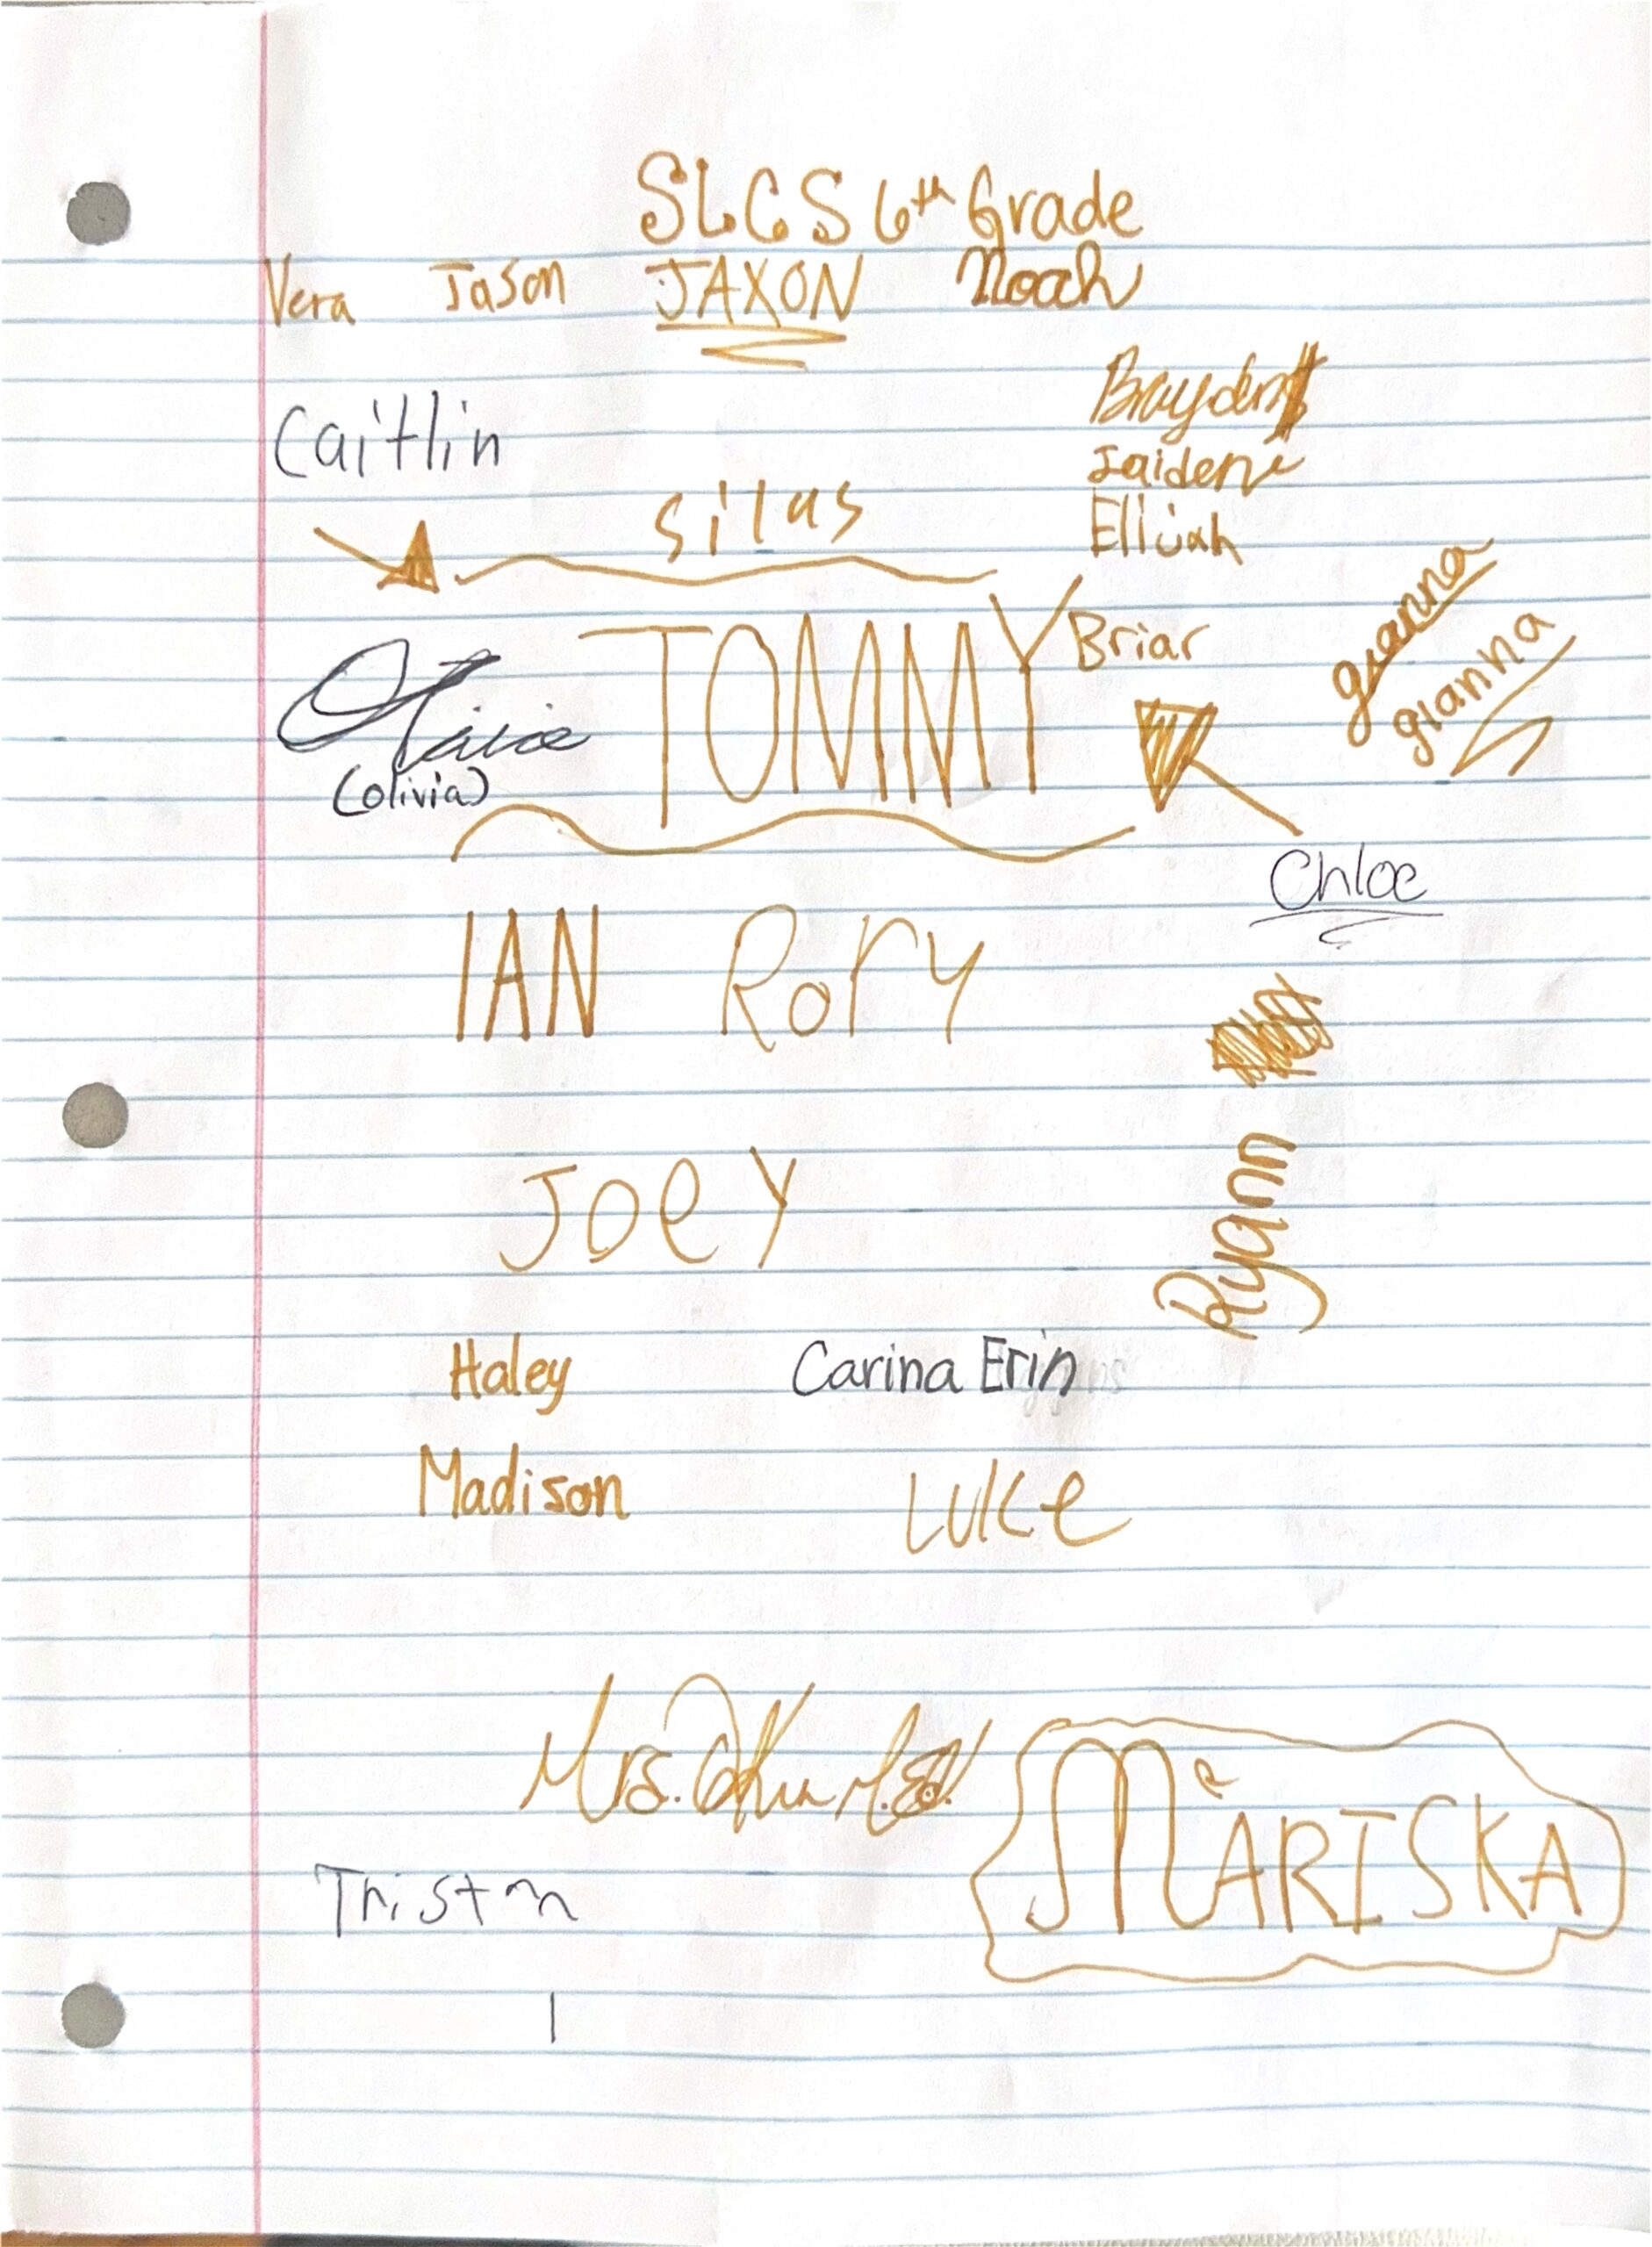 SLCS 6th Grade
Vera Jason JAXON Noah
Brayden
Caitlin
Jaiden
silas
Ellijah
gianna
TOMMY
Briar
gianna
Olivia
(olivia)
Chloe
IAN Rory
Joey
Ryann
Haley Carina Erin
Madison Luke
Mrs. M.Ed.
MARISKA
Tristan